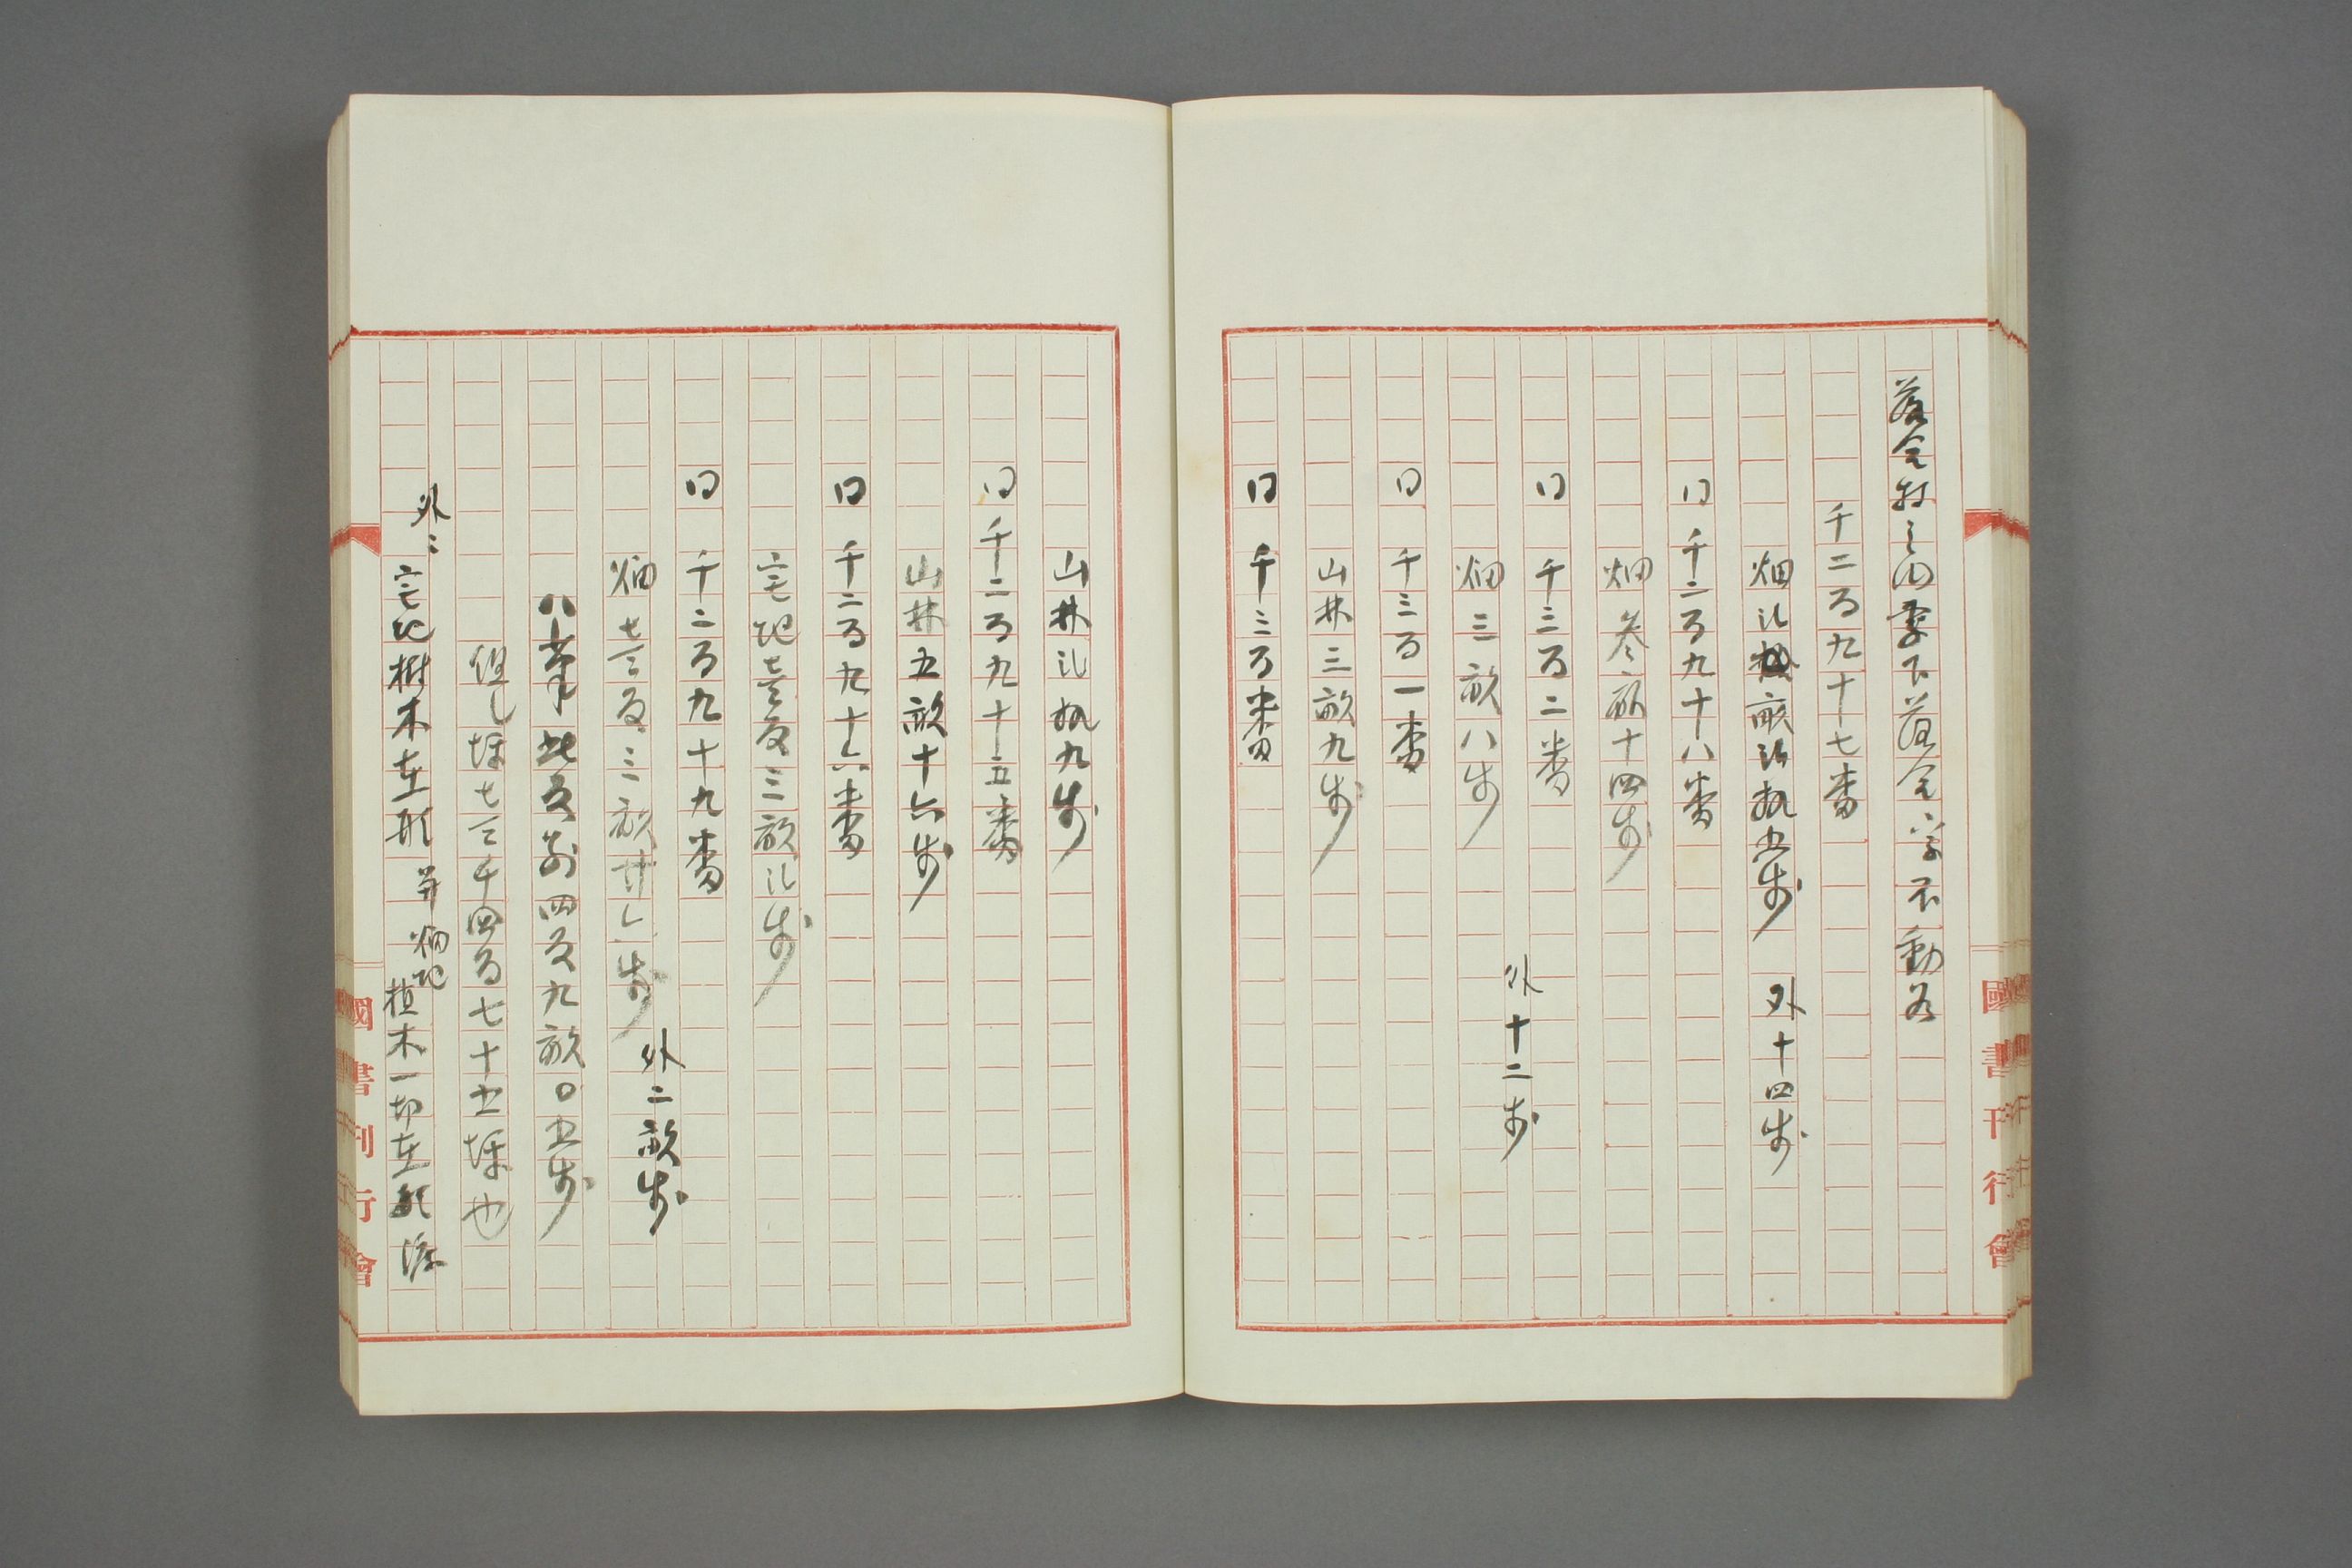 落合村之内字下落合字不動谷
千二百九十七番
畑弐畝弐拾五歩 外十四歩
同 千二百九十八番
畑 参畝十四歩
同 千三百二番
畑 三畝八歩 外十二歩
同 千三百一番
山林三畝九歩
同 千三百番
山林弐拾九歩
同 千二百九十五番
山林五畝十六歩
同 千二百九十六番
宅地壱反三畝弐歩
同 千二百九十九番
畑壱反三畝廿七歩 外二畝歩
八筆 此反別四反九畝〇五歩
但し坪壱千四百七十五坪也
外ニ 宅地樹木在形 并畑地植木一切在形
國書刊行會
國書刊行會